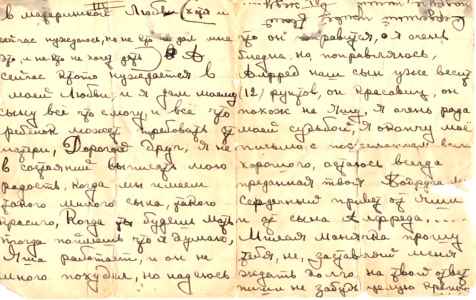 в материнской Любви (хотя и
сейчас нуждаюсь, но не кто дал мне
что, и не кто не хочет дать) А
сейчас кто то нуждается в
моей Любви и я дам моему
сыну всё что смогу и все что
ребёнок может требовать от
матери, Дорогой друг, я не
в состояний выписать мою
радость, когда мы имеем
такого милого сына, такого
красиво, Когда ты будешь мать
тогда поймешь что я думаю,
Яша работает, и он не
много похудил, но надеюсь
что он поправится, а я очень
бледна но поправляюсь,
Алфред наш сын уже весит
12½ фунтов, он красавец, он
похож на Яшу, я очень рада
моей судьбой, Я окончу мое
письмо с пожеланием всего
хорошего, остаюсь всегда
преданная твоя
Сердечный привет от Яши
и от сына Алфреда.....
Милая Манячка прошу
тебя, не, заставляй меня
ждать долго на твой ответ
пиши не забудь целую крепко